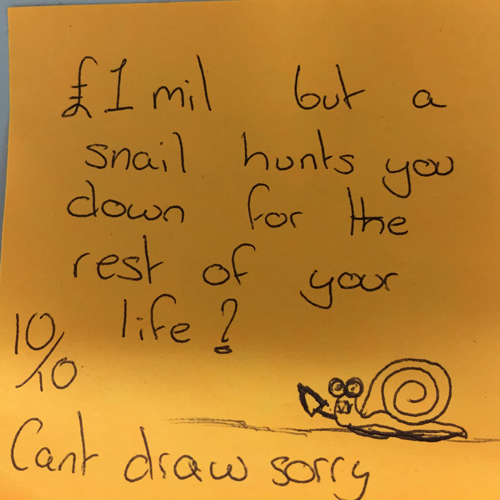 £1 mil but a
snail hunts you
down for the
rest of your
life?
10/10
Cant draw sorry